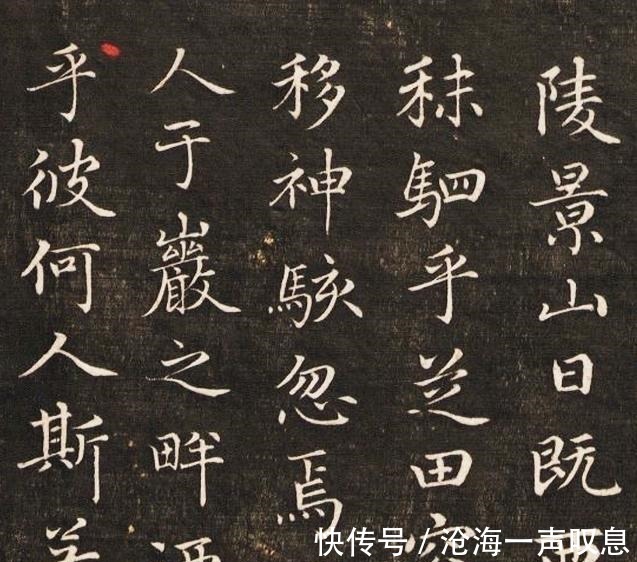 陵景山日既
秣駟乎芝田
移神駭忽焉
人于巖之畔
乎彼何人斯
快传号/沧海一声叹息